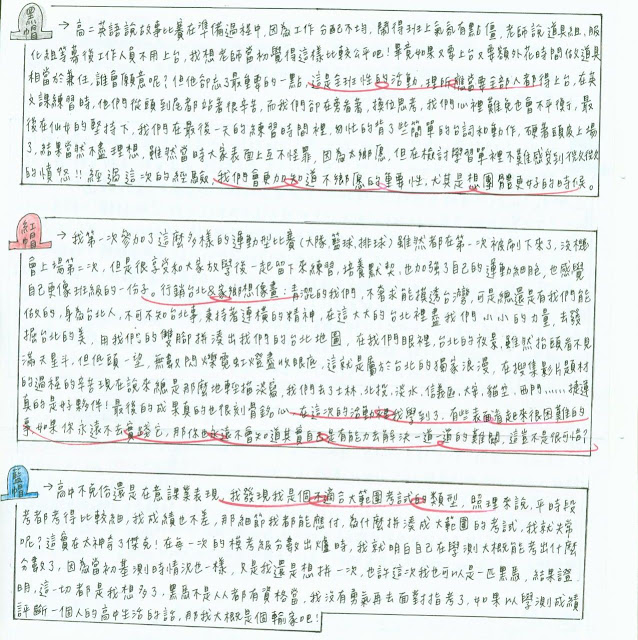 黑帽
→高二英語說故事比賽在準備過程中,因為工作分配不均,鬧得班上氣氛有點僵,老師說道具組、服
化組等幕後工作人員不用上台,我想老師當初覺得這樣比較公平吧!畢竟如果又要上台又要額外花時間做道具
相當於兼任,誰會願意呢?但他卻忘了最重要的一點,這是全班性的活動,理所應當要全部人都得上台,在英
文課練習時,他們從頭到尾都站著很辛苦,而我們卻在旁看著,換位思考,我們心裡難免也會不平衡,最
後在仙女的堅持下,我們在最後一次的練習時間裡,匆忙的背了些簡單的台詞和動作,硬著頭皮上場
了,結果當然不盡理想,雖然當時大家表面上互不怪罪,因為太鄉愿,但在檢討學習單裡不難感覺到
的憤怒!!經過這次的經驗,我們會更加知道不鄉愿的重要性,尤其是想團體更好的時候。
紅帽
→我第一次參加了這麼多樣的運動型比賽(大隊、籃球、排球)雖然都在第一次被刷下來了,沒機
會上場第二次,但是很享受和大家放學後一起留下來練習,培養默契,也加強了自己的運動細胞,也感覺
自己更像班級的一份子。行銷台北家鄉想像畫:青澀的我們,不奢求能摸透台灣,可是總還是有我們能
做的,身為台北人,不可不知台北事,秉持著連橫的精神,在這大大的台北裡盡我們小小的力量,去發
掘台北的美,用我們的雙腳拼湊出我們的台北地圖,在我們眼裡,台北的夜景,雖然抬頭看不見
滿天星斗,但低頭一望,無數閃爍霓虹燈盡收眼底,這就是屬於台北的獨家浪漫,在搜集影片題材
的過程的辛苦現在說來總是那麼地輕描淡寫,我們去了士林、北投、淡水、信義區、大安、貓空、西門……捷運
真的是好夥伴!最後的成果真的也很刻骨銘心,在這次的活動裡我學到了,有些表面看起來很困難的
事,如果你永遠不去實踐它,那你也永遠不會知道其實自己是有能力去解決一道一道的難關,這豈不是很可惜?
藍帽
→高中不免俗還是在意課業表現,我發現我是個不適合大範圍考試的類型,照理來說,平時段
考都考得比較細,我成績也不差,那細節我都能應付,為什麼拼湊成大範圍的考試,我就失常
呢?這實在太神奇了傑克!在每一次的模考級分數出爐時,我就明白自己在學測大概能考出什麼
分數了,因為當初基測時情況也一樣,又是我還是想拼一次,也許這次我也可以是一匹黑馬,結果證
明,這一切都是我想多了,黑馬不是人人都有資格當,我沒有勇氣再去面對指考了,如果以學測成績
評斷一個人的高中生活的話,那我大概是個輸家吧!